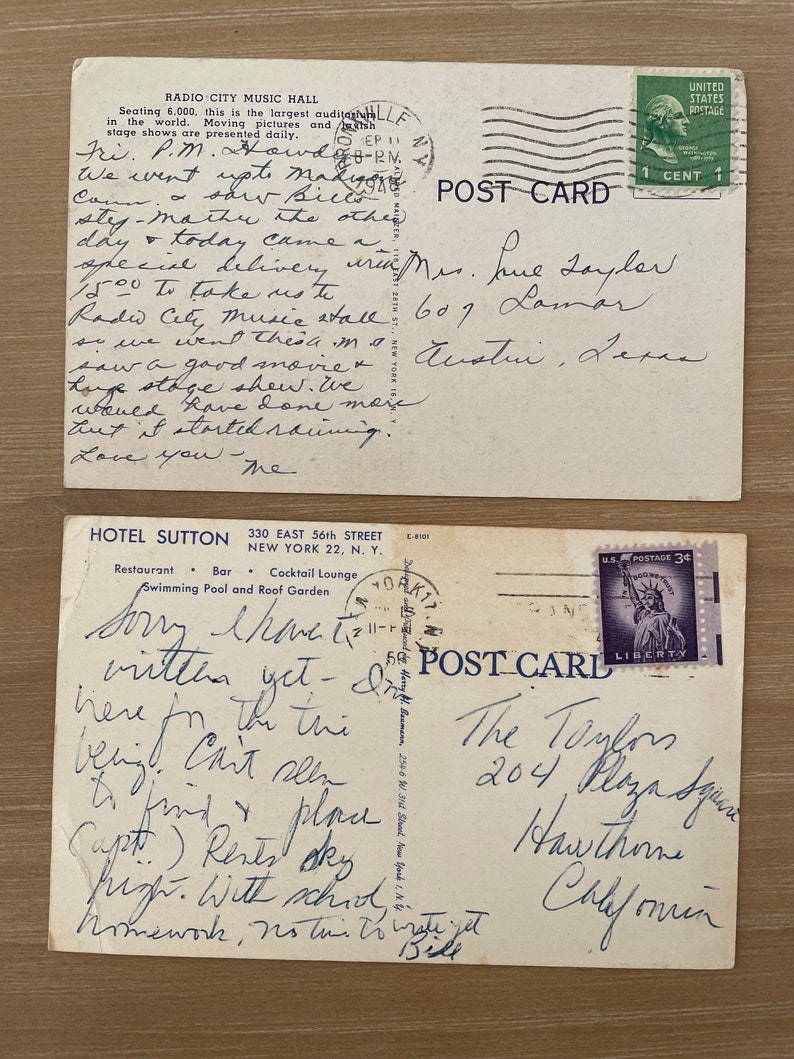 RADIO CITY MUSIC HALL
Seating 6,000, this is the largest auditorium
in the world. Moving pictures and lavish
stage shows are presented daily.
Fri. P.M. Howdy
We went up to Madison
Conn. & saw Bill's
step-mother the other
day & today came a
special delivery with
15.00 to take us to
Radio City Music Hall
so we went this a.m. &
saw a good movie &
huge stage show. We
would have done more
but it started raining.
Love you -
Me
BRONXVILLE N.Y.
SEP 11
8-PM
194
MAINZER, 118 EAST 28TH ST., NEW YORK 16, N. Y.
UNITED
STATES
POSTAGE
GEORGE
WASHINGTON
1789-1797
1 CENT 1
POST CARD
Mrs. Taylor
607 Lamar
Austin, Texas
HOTEL SUTTON 330 EAST 56th STREET
NEW YORK 22, N. Y.
Restaurant • Bar • Cocktail Lounge
Swimming Pool and Roof Garden
Sorry I haven't
written yet - I'm
here for the time
being. Can't seem
to find a place
(apt.) Rents sky
high. With school,
homework, no time to write yet
Bill
E-8101
YORK 17, N.Y.
11-P
56
by Harry H. Baumann, 254-6 W. 31st Street, New York 1, N.Y.
U.S. POSTAGE 3¢
IN GOD WE TRUST
LIBERTY
POST CARD
The Taylors
204 Plaza Square
Hawthorne
California